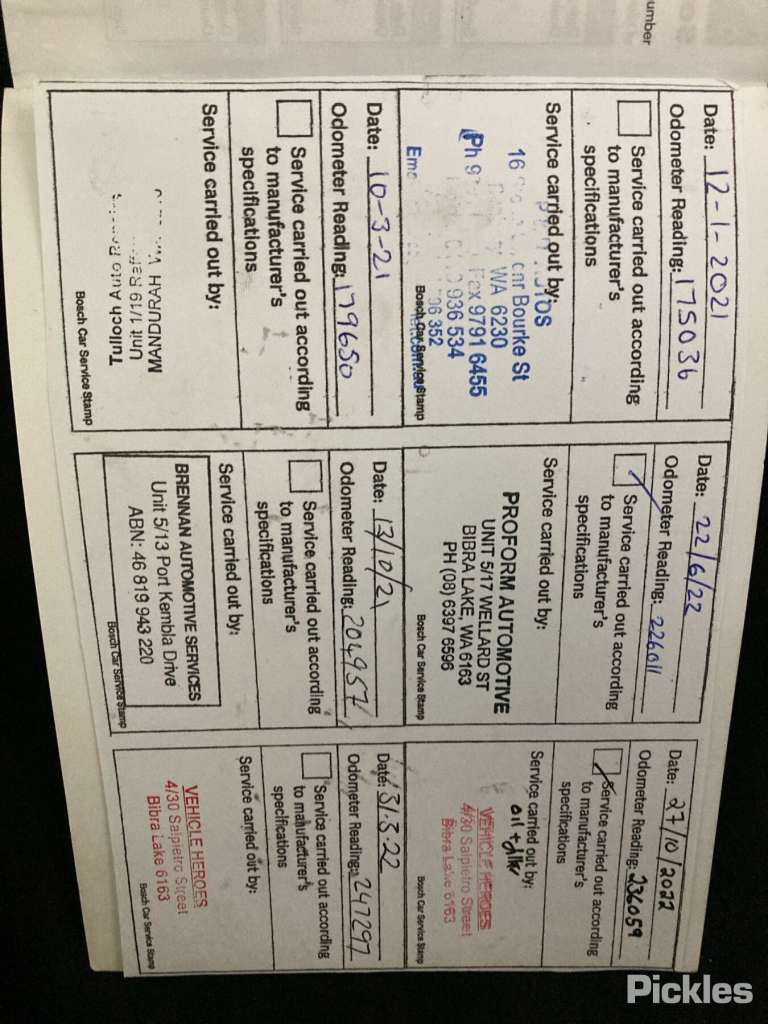 umber
Date: 12-1-2021
Odometer Reading: 175036
Service carried out according
to manufacturer's
specifications
Service carried out by:
16 cnr Bourke St
WA 6230
Ph 9 Fax 9791 6455
936 534
352
Bosch Car Service Stamp
Date: 10-3-21
Odometer Reading: 179650
Service carried out according
to manufacturer's
specifications
Service carried out by:
Tulloch Auto
Unit 1/19
MANDURAH
Bosch Car Service Stamp
Date: 22/6/22
Odometer Reading: 226011
Service carried out according
to manufacturer's
specifications
Service carried out by:
PROFORM AUTOMOTIVE
UNIT 5/17 WELLARD ST
BIBRA LAKE, WA 6163
PH (08) 6397 6596
Bosch Car Service Stamp
Date: 13/10/21
Odometer Reading: 204957
Service carried out according
to manufacturer's
specifications
Service carried out by:
BRENNAN AUTOMOTIVE SERVICES
Unit 5/13 Port Kembla Drive
ABN: 46 819 943 220
Bosch Car Service Stamp
Date: 27/10/2022
Odometer Reading: 236059
Service carried out according
to manufacturer's
specifications
Service carried out by:
VEHICLE HEROES
4/30 Salpietro Street
Bibra Lake 6163
Bosch Car Service Stamp
Date: 31.3.22
Odometer Reading: 247297
Service carried out according
to manufacturer's
specifications
Service carried out by:
VEHICLE HEROES
4/30 Salpietro Street
Bibra Lake 6163
Bosch Car Service Stamp
Pickles